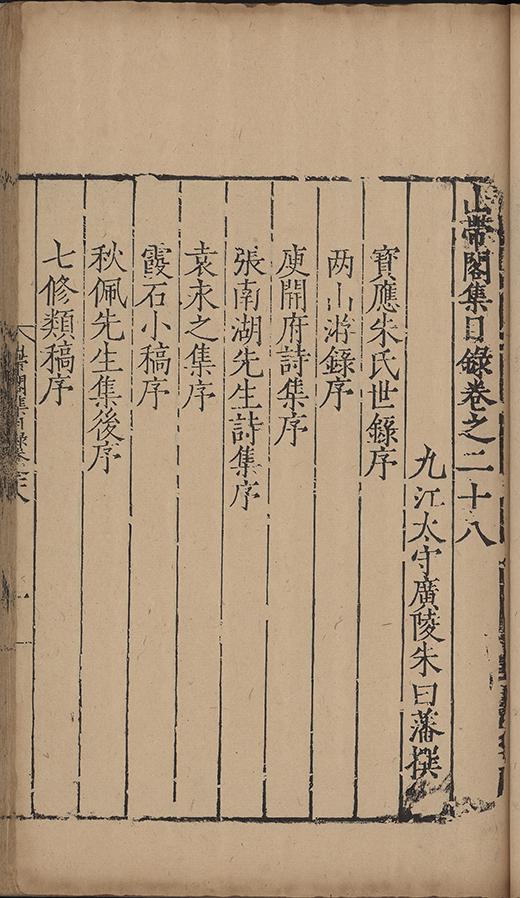 山帶閣集目錄卷之二十八
九江太守廣陵朱曰藩撰
寶應朱氏世錄序
两山游錄序
庾開府詩集序
張南湖先生詩集序
袁永之集序
霞石小稿序
秋佩先生集後序
七修類稿序
帶閣集目錄卷